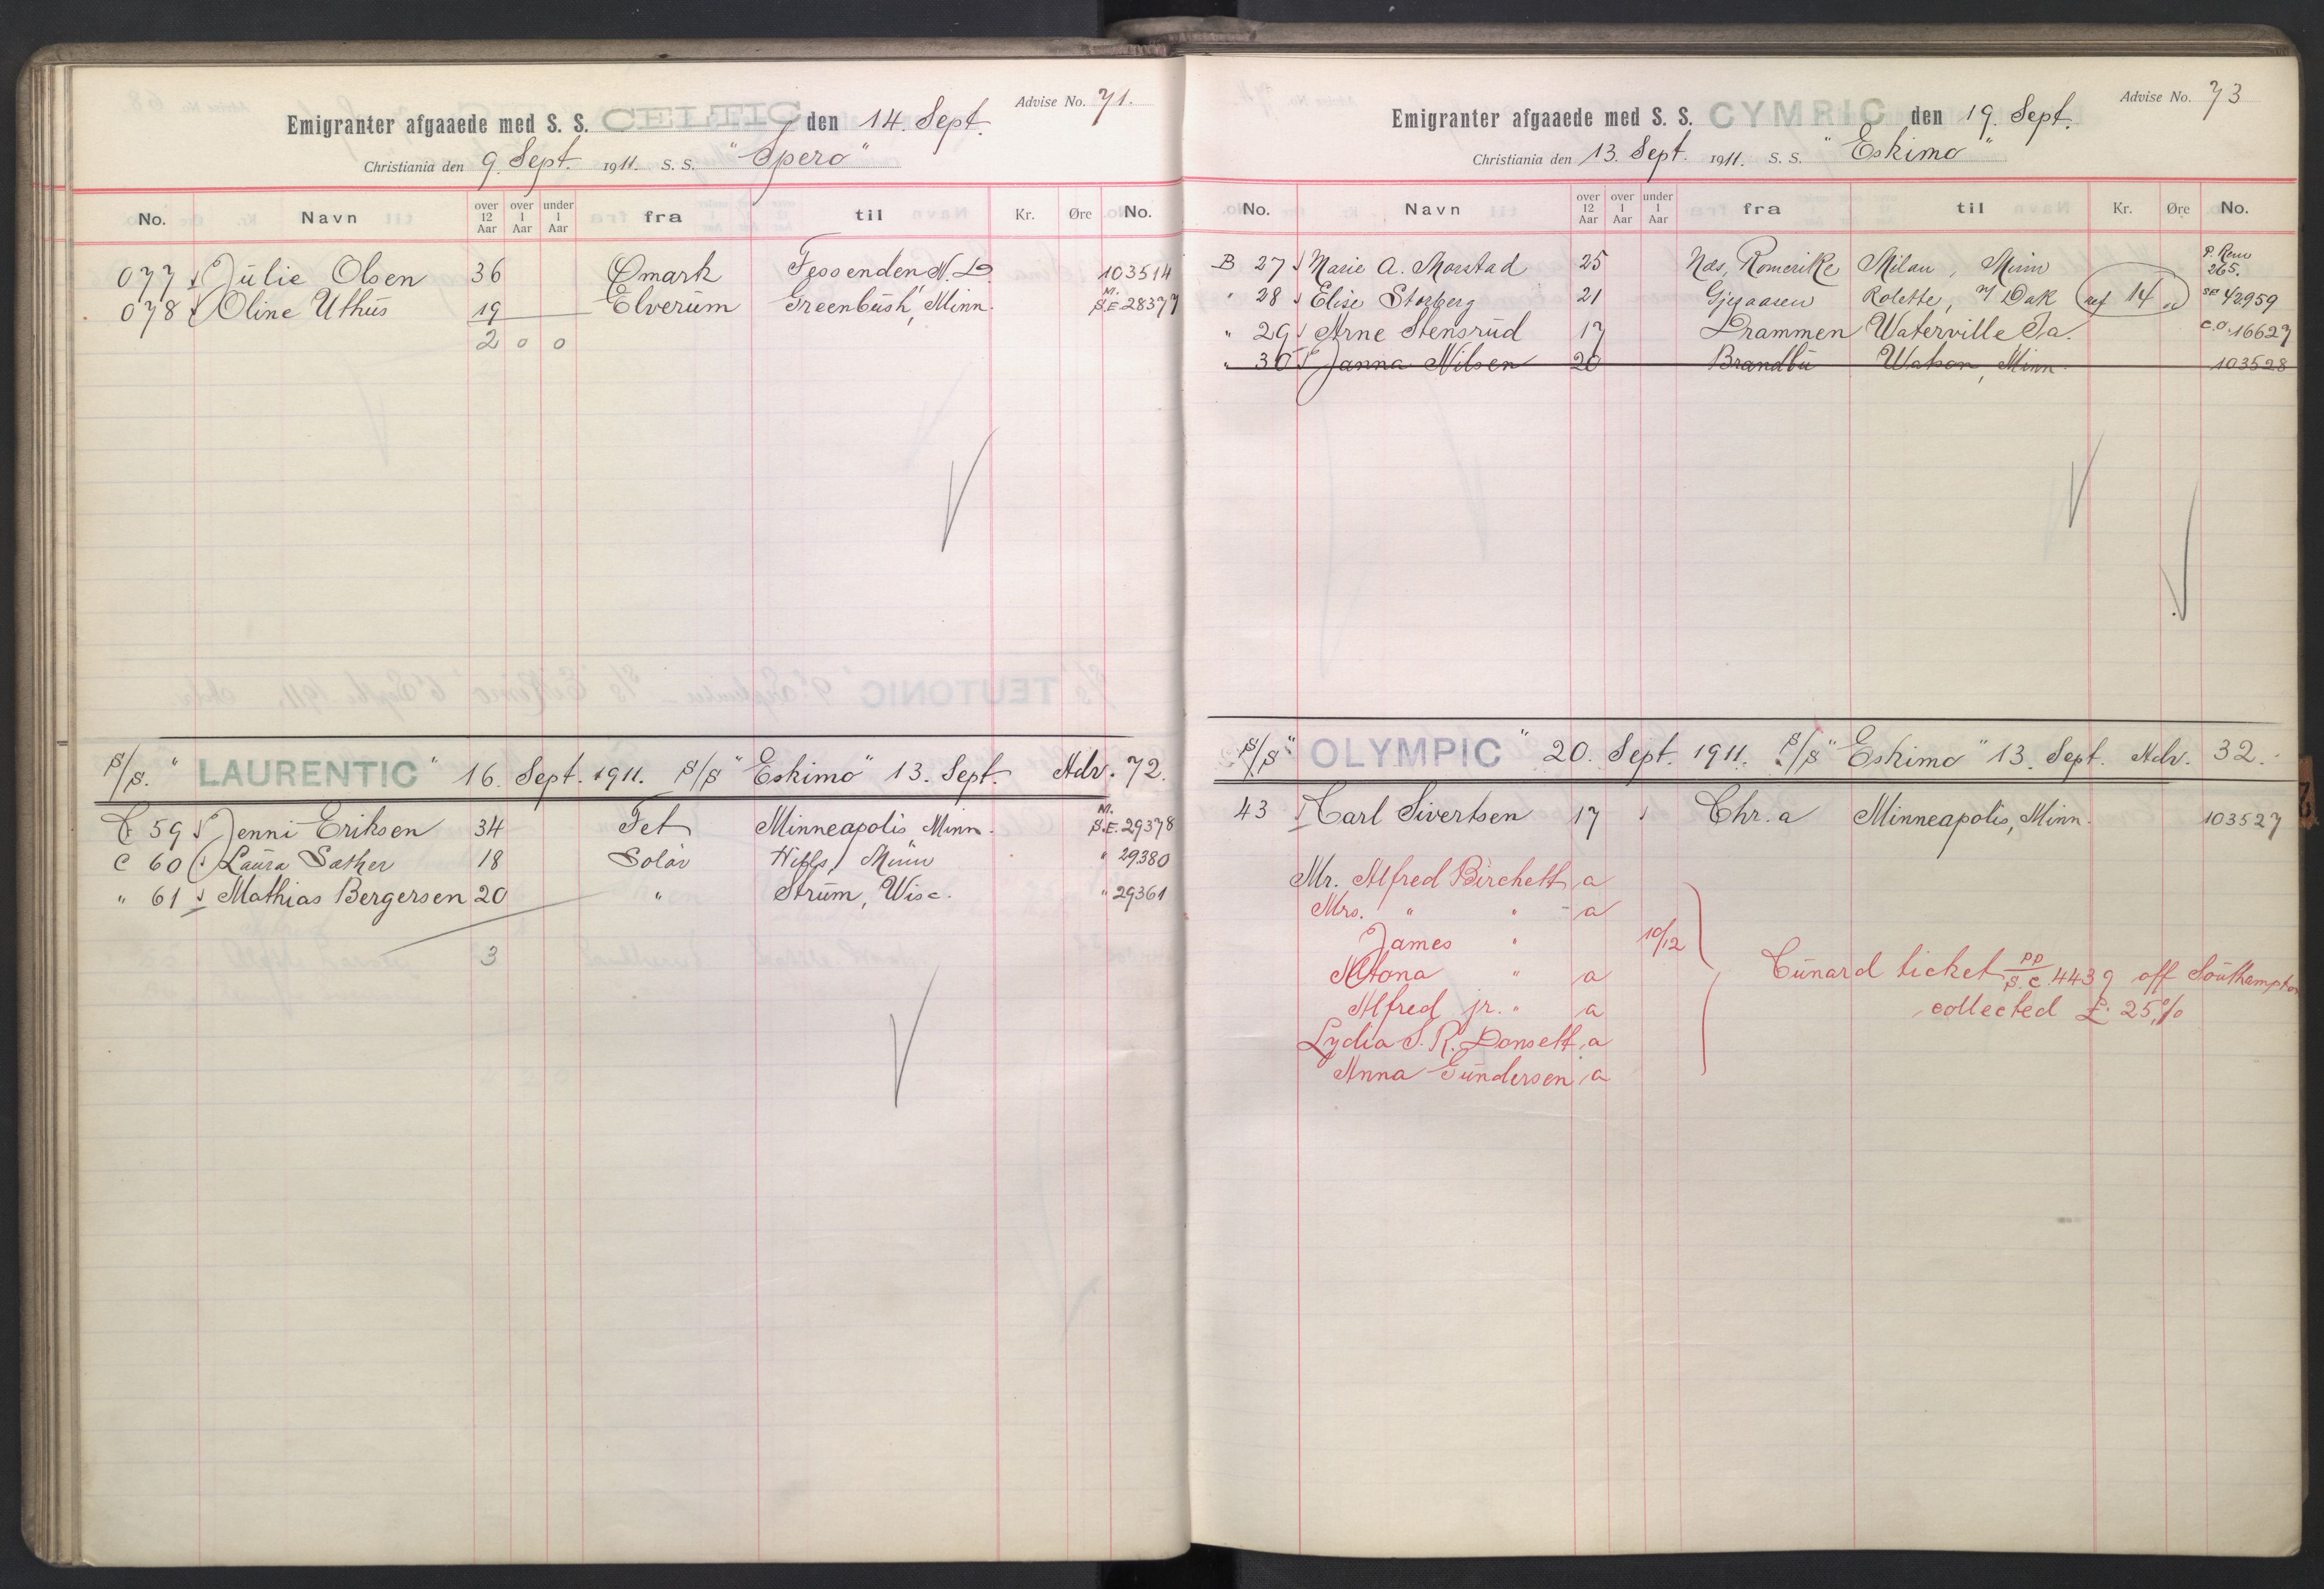 Advise No. 71.
Emigranter afgaaede med S. S. CELTIC den 14. Sept.
Christiania den 9. Sept. 1911. S. S. "Spero"
No. Navn over 12 Aar over 1 Aar under 1 Aar fra til Kr. Øre No.
077 Julie Olsen 36 Ømark Fessenden N. D. 103514
078 Oline Uthus 19 Elverum Greenbush, Minn. M. S.E. 28377
2 0 0
S/S. "LAURENTIC" 16. Sept. 1911. S/S "Eskimo" 13. Sept. Adv. 72.
C 59 Jenni Eriksen 34 Fet Minneapolis Minn. M. S.E. 29378
C 60 Laura Sæther 18 Solør Minn " 29380
" 61 Mathias Bergersen 20 " Strum, Wisc. " 29361
3
Advise No. 73
Emigranter afgaaede med S. S. CYMRIC den 19. Sept.
Christiania den 13. Sept. 1911. S. S. "Eskimo"
No. Navn over 12 Aar over 1 Aar under 1 Aar fra til Kr. Øre No.
B 27 Marie A. Morstad 25 Næs, Romerike Milan, Minn P. Rew 265.
" 28 Elise Storberg 21 Gjyaasen Rolette, N Dak 14 SE 42959
" 29 Arne Stensrud 17 Drammen Waterville Ia. C.O. 16627
" 30 Janna Nilsen 20 Brandbu Watson, Minn. 103528
S/S "OLYMPIC" 20. Sept. 1911. S/S "Eskimo" 13. Sept. Adv. 32.
43 Carl Sivertsen 17 Chr.a Minneapolis, Minn. 103527
Mr. Alfred Birchett a
Mrs. " " a
James " 10/12
Altona " a
Alfred jr. " a
Lydia S. R. Donsett a
Anna Gundersen a
Cunard ticket PP S.C. 4439 off Southampton
collected £. 25.%